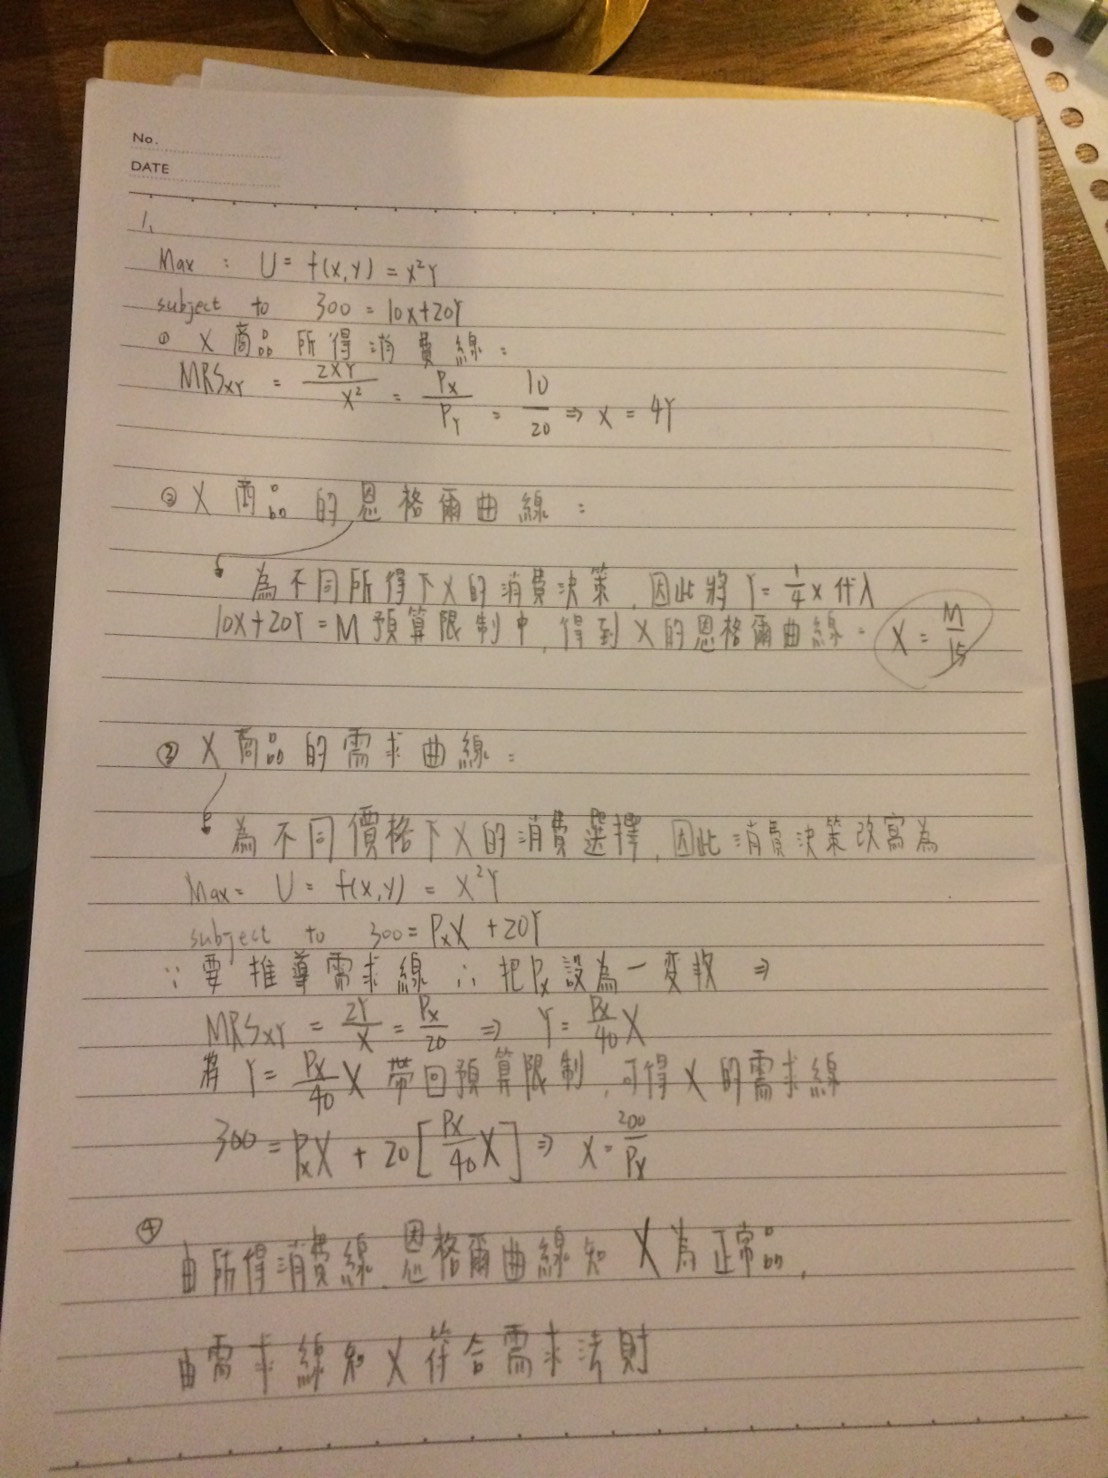 No.
DATE
1.
Max : U = f(x,y) = x²Y
subject to 300 = 10x+20Y
① X 商品所得消費線:
MRSxY = 2XY/X² = Px/PY = 10/20 ⇒ x = 4Y
② X 商品的恩格爾曲線:
為不同所得下X的消費決策,因此將 Y = 1/4 x 代入
10x+20Y = M 預算限制中,得到 X 的恩格爾曲線: X = M/15
③ X 商品的需求曲線:
為不同價格下X的消費選擇,因此消費決策改寫為
Max = U = f(x,y) = X²Y
subject to 300 = PxX + 20Y
∵ 要推導需求線 ∴ 把Px設為一變數 ⇒
MRSxY = 2Y/X = Px/20 ⇒ Y = Px/40 X
將 Y = Px/40 X 帶回預算限制,可得X的需求線
300 = PxX + 20[Px/40 X] ⇒ X = 200/Px
④
由所得消費線、恩格爾曲線知 X 為正常品,
由需求線知X符合需求法則